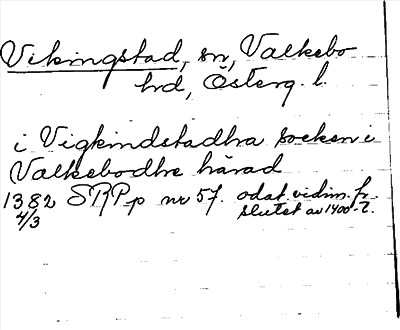 Vikingstad, sn, Valkebo
hrd, Österg. l.
i Vigkindstadhra socken i
Valkebodhe härad
1382 SRPp nr 57. odat. vidim. fr.
4/3 slutet av 1400-t.